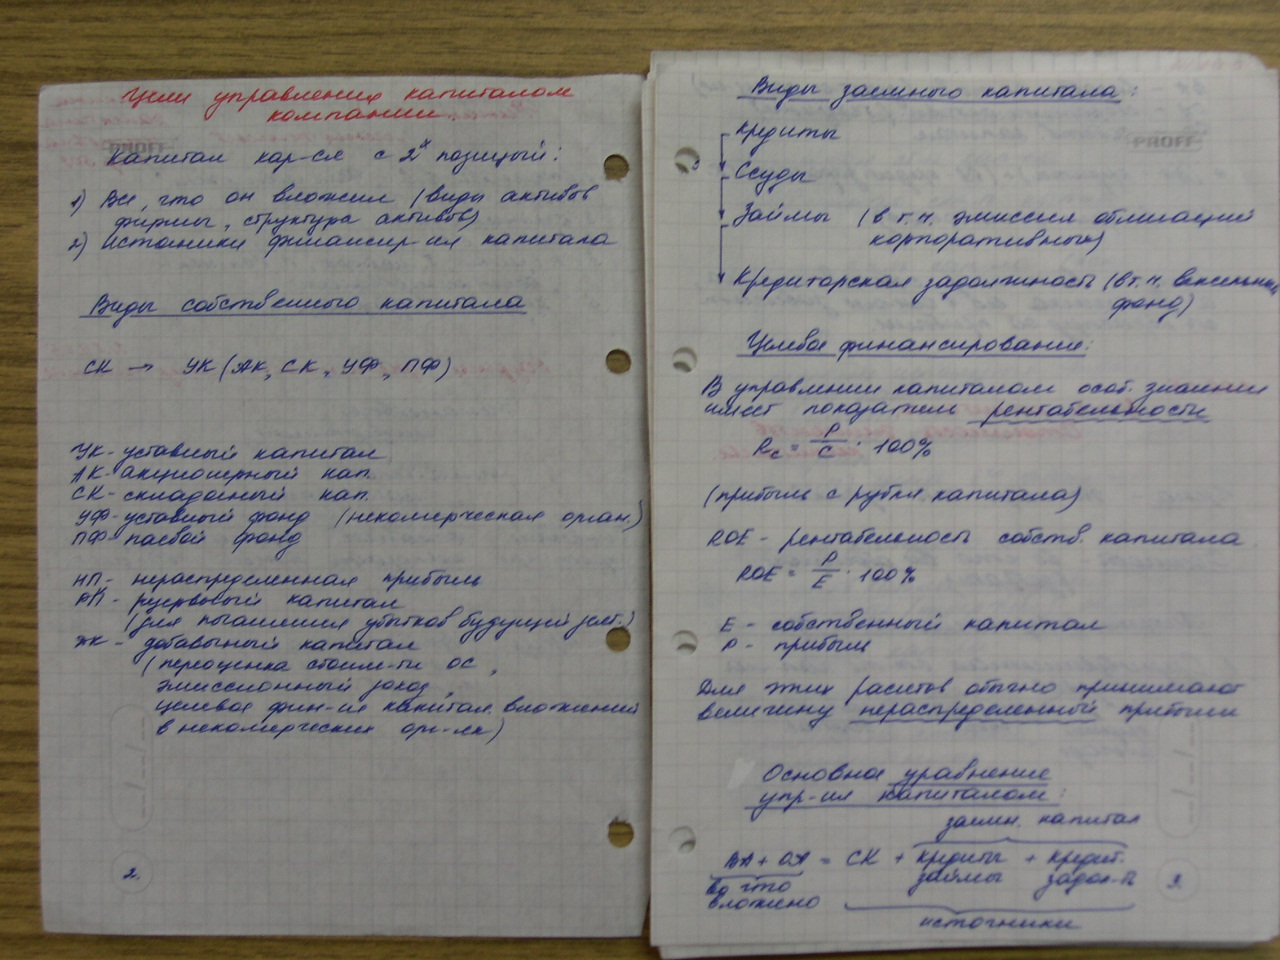 Цели управления капиталом
компании.
Капитал хар-ся с 2х позиций:
1) Все, что он вложил (виды активов
фирмы, структура активов)
2) Источники финансир-ия капитала
Виды собственного капитала
СК → УК (АК, СК, УФ, ПФ)
УК - уставный капитал
АК - акционерный кап.
СК - складочный кап.
УФ - уставный фонд (некомерческая орган.)
ПФ - паевой фонд
НП - нераспределенная прибыль
РК - резервный капитал
(для погашения убытков будущих
ДК - добавочный капитал
(переоценка стоим-ти ОС,
эмиссионный доход,
целевое фин-ие капитал. вложений
в некомерческих орг-ях)
2.
Виды заемного капитала:
Кредиты
Ссуды
Займы (в т.ч. эмиссия облигаций
корпоративных)
Кредиторская задолжность (в т.ч. вексельный
фонд)
Целевое финансирование:
В управлении капиталом особ. значение
имеет показатель рентабельности
Rc = P/C · 100%
(прибыль с рубля капитала)
ROE - рентабельность собств. капитала
ROE = P/E · 100%
E - собственный капитал
P - прибыль
Для этих расчетов обычно принимают
величину нераспределенной прибыли
Основное уравнение
упр-ия капиталом:
заемн. капитал
ВА + ОА = СК + кредиты + кредит.
во что займы задол-ть
вложено
источники
3.
PROFF
PROFF